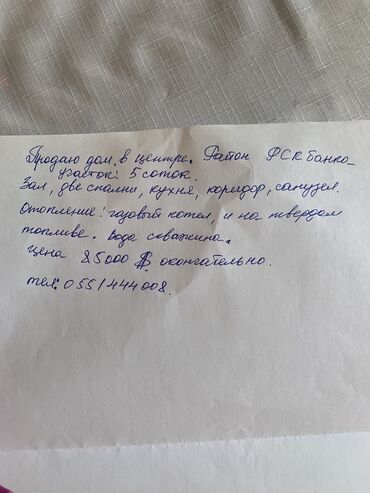 Продаю дом. в центре. Район РСК банка-
участок: 5 соток.
Зал, две спални, кухня, коридор, санузел.
Отопление: газовый котел, и на твердом
топливе. Вода скважина.
цена 85000 $ окончательно.
тел: 0551444008.